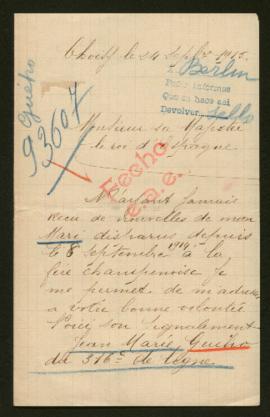 Choisy le 24 Septbre 1915.
Berlin
Pedir informes
Que se hace así
Devolver sello
Guého
93607
Monsieur Sa Majesté
le roi d'Espagne
Fecho
N'ayant jamais
recu de nouvelles de mon
Mari disparus depuis
le 8 Septembre 1914 a la
fère champenoise Je
me permet de m'adresser
a votre bonne volontée
Voici son signalement
Jean Marie Guého
du 316me de ligne